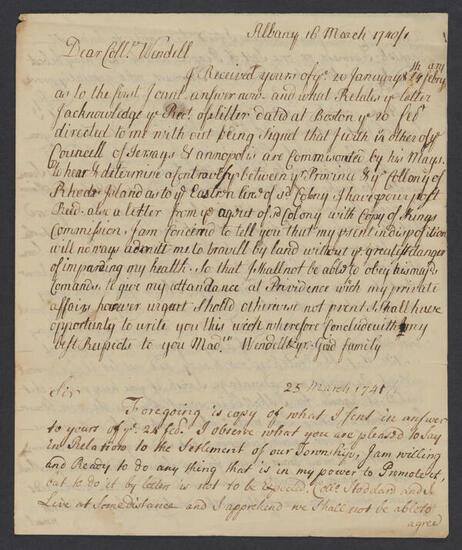 Albany 16 March 1740/1
Dear Coll. Wendell
I Received yours of ye. 20 January & 24th febry
as to the first I cant answer now and what Relates ye letter
I acknowledge ye Rect. of letter dated at Boston ye 20 feb
directed to me with out being Signed that I with other of ye
Councell of Jersays & annopolis are Commisoned by his Majs.
to hear & determine a Contravesy between ye Province & ye Collony of
Rhode Island as to ye Eastern line of sd Colony I have your post
Recd. also a letter from ye agent of sd Colony with Copy of Kings
Commission, I am Concernd to tell you that my present indisposition
will no ways admitt me to travell by land without ye greatest danger
of impareing my health. So that I shall not be able to obey his majs
Comands to give my attendance at Providence with my private
affairs however urgent Should otherwise not prevent I Shall have
opportunity to write you this week wherefore Conclude with my
best Respects to you Madm. Wendell & yr. Good family
25 March 1741
Sir
Foregoing is copy of what I sent in answer
to yours of ye. 24 feb. I observe what you are pleased to say
in Relation to the Setlement of our Township, I am willing
and Ready to do any thing that is in my power to Promote it,
but to do it by letters is not to be Expected. Collo. Stoddard and I
Live at Some distance and I apprehend we Shall not be able to
agree